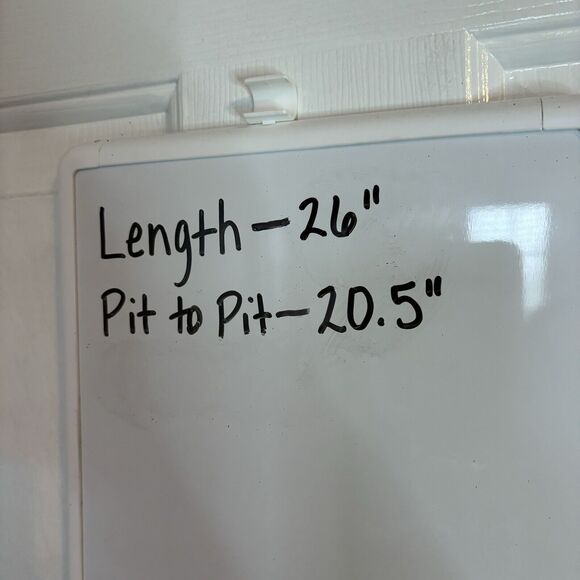 Length - 26"
Pit to Pit - 20.5"